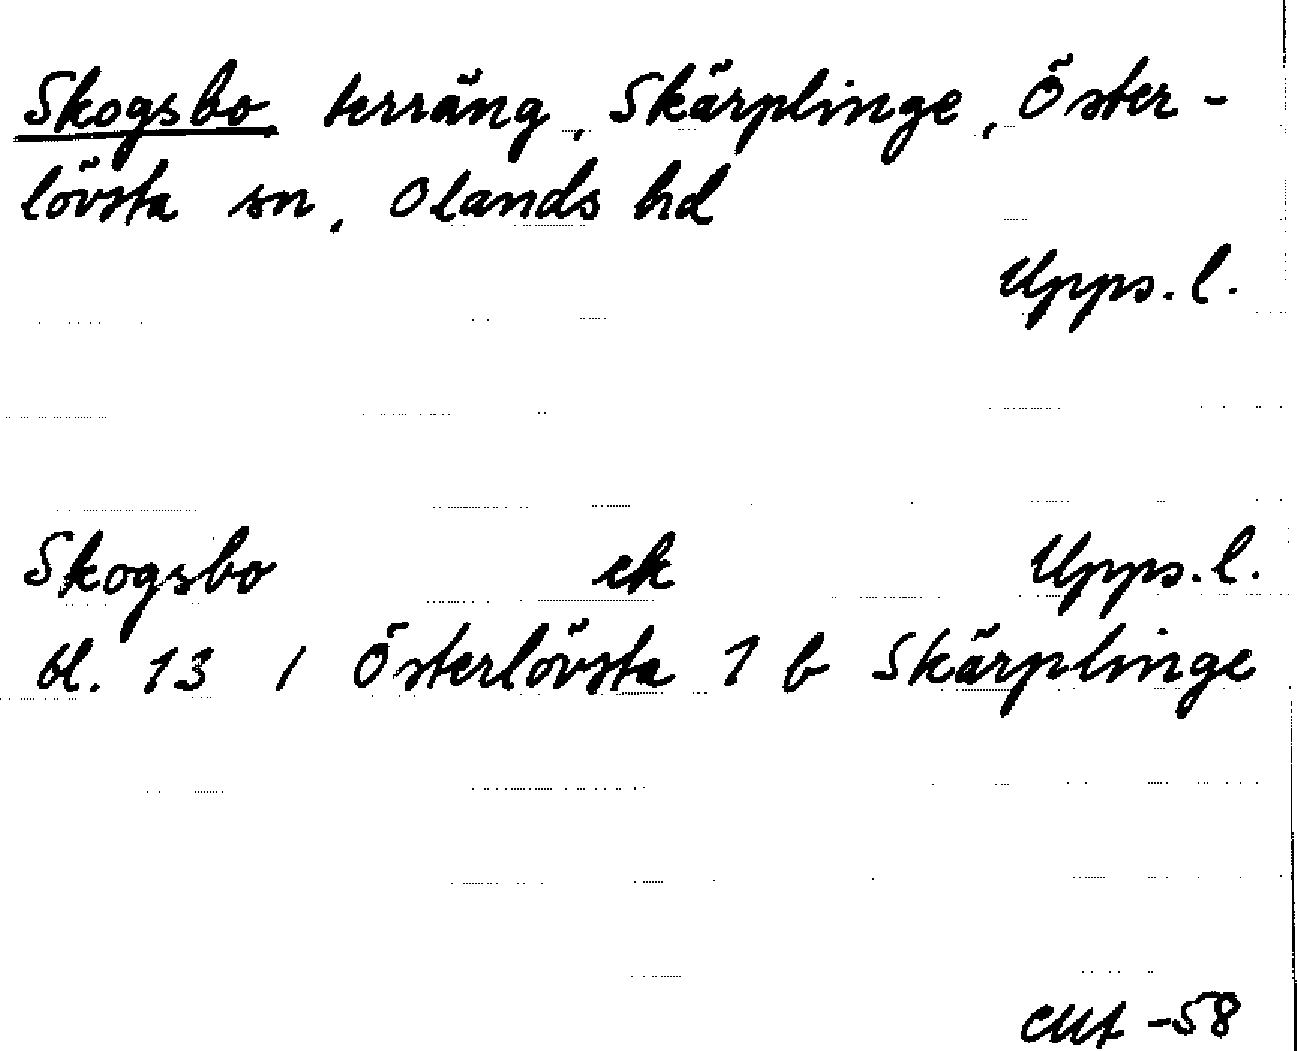 Skogsbo, terräng, Skärplinge, Öster-
lövsta sn, Olands hd
Upps. l.
Skogsbo ek Upps. l.
bl. 13 / Österlövsta 1 b Skärplinge
-58